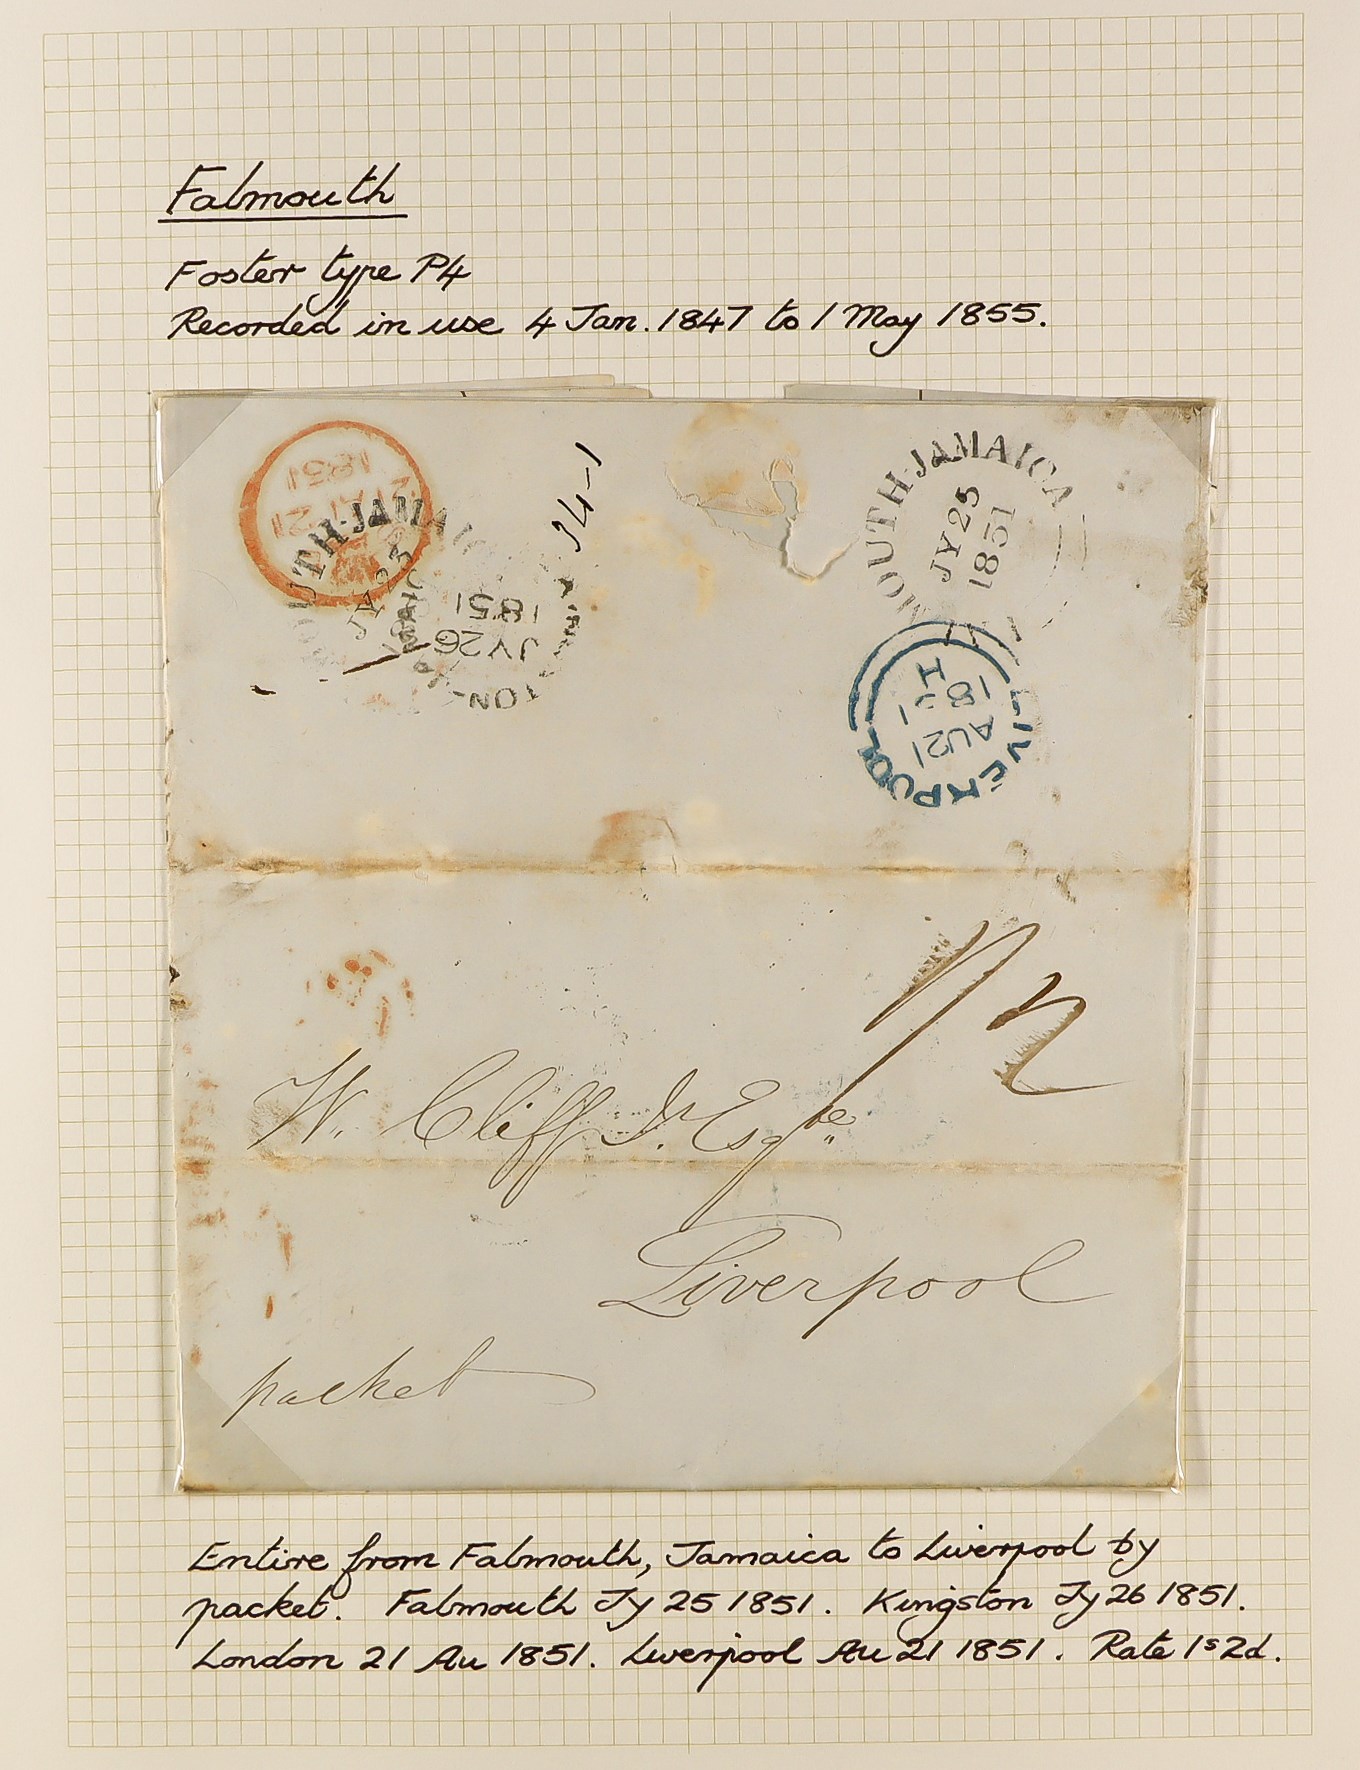 Falmouth
Foster type P4
Recorded in use 4 Jan. 1847 to 1 May 1855.
1851
21 AU 21
MOUTH-JAMAICA
JY 25
1851
JY 26
1851
MOUTH-JAMAICA
JY 25
1851
LIVERPOOL
AU 21
18 51
H
1/2
W. Cliff Jr. Esqre
Liverpool
packet
Entire from Falmouth, Jamaica to Liverpool by
packet. Falmouth Jy 25 1851. Kingston Jy 26 1851.
London 21 Au 1851. Liverpool Au 21 1851. Rate 1s 2d.